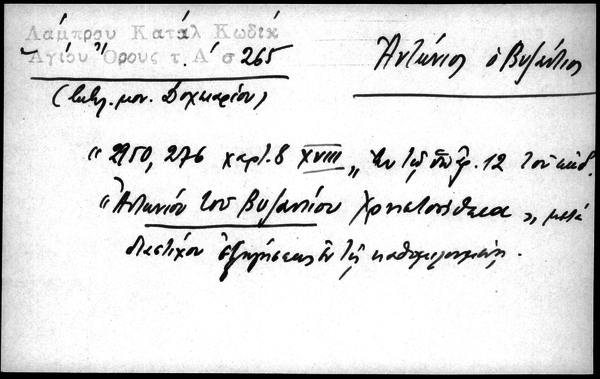 Λάμπρου Κατάλ Κωδίκ
Ἁγίου Ὄρους τ. Α' σ 265
Ἀντώνιος ὁ Βυζάντιος
(βιβλ. μον. Δοχειαρίου)
" 2950, 276 χαρτ. 8 XVIII " ἐν τῷ ὑπ' ἀρ. 12 τοῦ κώδ.
" Ἀντωνίου τοῦ Βυζαντίου Χρηστοήθεια " μετὰ
διαστίχου ἐξηγήσεως ἐν τῇ καθομιλουμένῃ.